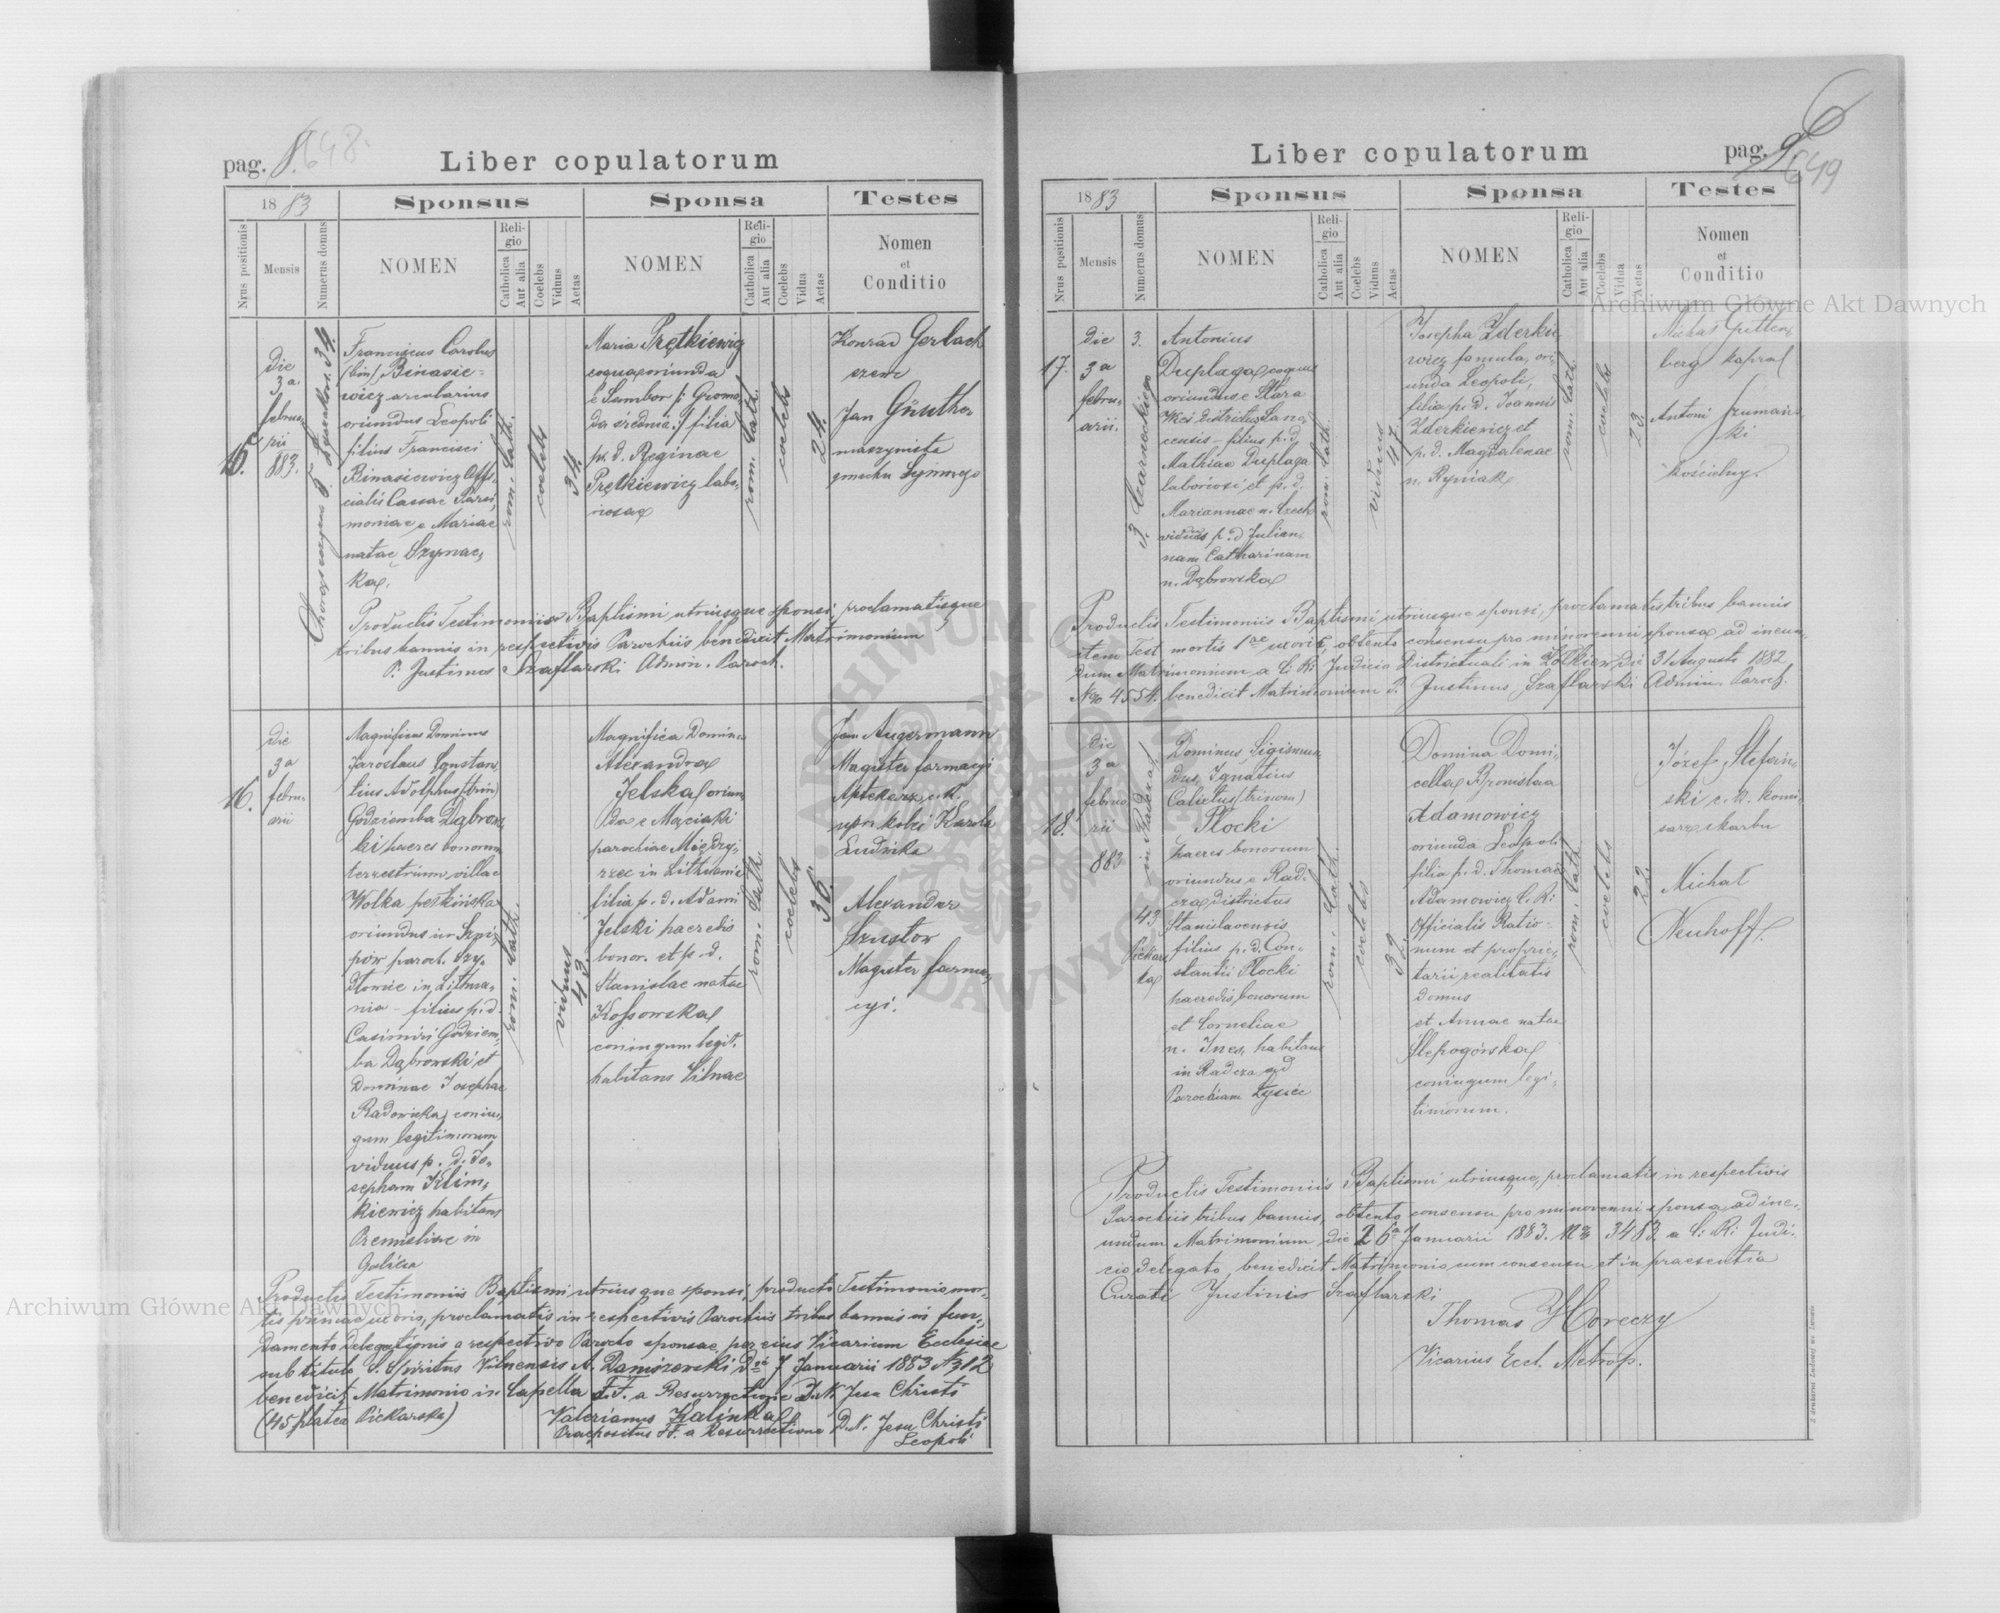 pag. 8. 648.
Liber copulatorum
1883
Sponsus
Sponsa
Testes
Nrus positionis
Mensis
Numerus domus
NOMEN
Religio
Catholica
Aut alia
Coelebs
Viduus
Aetas
NOMEN
Religio
Catholica
Aut alia
Coelebs
Vidua
Aetas
Nomen
et
Conditio
15.
die
3a
februarii
883.
34.
Franciscus Carolus
(bin) Binasie=
wicz arcularius
oriundus Leopoli
filius Francisci
Binasiewicz Offi-
cialis Cassae Parsi,
moniae e Mariae
natae Szymac,
ka.
rom. Cath.
coelebs
34.
Maria Prętkiewicz
coqua oriunda
e Sambor p: Groma
da średnia:/ filia
p. d. Reginae
Prętkiewicz labo,
riosa
rom. Cath.
coelebs
24.
Konrad Gerlach
szewc
Jan Günther
maszynista
gmachu Sejmowego
Productis Testimoniis Baptismi utriusque sponsi, proclamatisque
tribus bannis in respectivis Parochiis benedicit Matrimonium
P. Justinus Szaflarski Admin. Paroch.
16.
die
3a
febru-
arii
Magnificus Dominus
Jaroslaus Constan,
tius Adolphus (trin)
Godziemba Dąbrows,
ki haeres bonorum
terrestrium villae
Wolka pełkińska
oriundus in Szpi,
pów paroch. Szy,
dłowie in Lithua-
nia - filius p. d.
Casimiri Godziem,
ba Dąbrowski et
Dominae Josephae
Radowicka coniu,
gum legitimorum
viduus p. d. Jo,
sepham Klim,
kiewicz habitans
Premisliae in
Galicia
rom. Cath.
viduus
43.
Magnifica Domina
Alexandra
Jelska oriun,
da e Maciaki
parochiae Między,
rzec in Lithuania
filia p. d. Adami
Jelski haeredis
bonor. et p. d.
Stanislae natae
Kossowska
coniugum legit.
habitans Vilnae
rom. Cath.
coelebs
36.
Jan Augermann
Magister farmacyi
Aptekarz c. k.
uprz. kolei Karola
Ludwika
Alexander
Szustow
Magister farma,
cyi.
Productis Testimoniis Baptismi utriusque sponsi, producto Testimonio mor-
tis primae uxoris, proclamatis in respectivis Parochiis tribus bannis in fun,
damento Delegationis a respectivo Parocho sponsae, per eius Vicarium Ecclesiae
sub titulo S. Spiritus Vilnensis A. Daniszewski ddo 7 Januarii 1883 N 312
benedicit Matrimonio in Capella F.F. a Resurrectione D.N. Jesu Christi
(45 platea Piekarska)
Valerianus Kalinka
Praepositus FF. a Resurrectione D.N. Jesu Christi
Leopoli
Liber copulatorum
pag. 9 649
6
1883
Sponsus
Sponsa
Testes
Nrus positionis
Mensis
Numerus domus
NOMEN
Religio
Catholica
Aut alia
Coelebs
Viduus
Aetas
NOMEN
Religio
Catholica
Aut alia
Coelebs
Vidua
Aetas
Nomen
et
Conditio
17.
die
3a
febru-
arii.
3.
3. Czarneckiego
Antonius
Duplaga, coquus
oriundus e Stara
Wieś districtus Lan,
censis - filius p. d.
Mathiae Duplaga
laboriosi et p. d.
Mariannae n. Czech
viduus p. d. Julian,
nam Catharinam
n. Dąbrowska
rom. Cath.
viduus
47.
Josepha Zderkie,
wicz famula, ori,
unda Leopoli,
filia p. d. Joannis
Zderkiewicz et
p. d. Magdalenae
n. Rypniak
rom. Cath.
coelebs
23.
Michał Gutten,
berg kapral
Antoni Szumań,
ski
kościelny.
Productis Testimoniis Baptismi utriusque sponsi, proclamatis tribus bannis
item Test. mortis 1ae uxoris, obtento consensu pro minorenni sponsa ad ineun,
dum Matrimonium a C. R. Judicio Districtuali in Żółkiew die 31 Augusti 1882
Nro 4554. benedicit Matrimonium P. Justinus Szaflarski Admin. Paroch.
18.
die
3a
februa
rii
883
in Radcza
43
Piekars
ka
Dominus Sigismun,
dus, Ignatius
Calixtus (trinom)
Płocki
haeres bonorum
oriundus e Rad,
cza districtus
Stanislavensis
filius p. d. Con-
stantii Płocki
haeredis bonorum
et Corneliae
n. Ines, habitans
in Radcza ad
Parochiam Łysiec
rom. Cath.
coelebs
32.
Domina Domi,
cella Bronislaa
Adamowicz
oriunda Leopoli
filia p. d. Thomae
Adamowicz C. R.
Officialis Ratio-
num et proprie-
tarii realitatis
domus
et Annae natae
Ślepogórska
coniugum legi-
timorum.
rom. Cath.
coelebs
22.
Józef Stefań,
ski c. k. komi,
sarz skarbu
Michał
Neuhoff.
Productis Testimoniis Baptismi utriusque, proclamatis in respectivis
Parochiis tribus bannis, obtento consensu pro minorenni sponsa ad ine,
undum Matrimonium die 26a Januarii 1883. N 3483 a C. R. Judi,
cio delegato, benedicit Matrimonio cum consensu et in praesentia
Curati Justinis Szaflarski
Thomas Horeczy
Vicarius Eccl. Metrop.
Archiwum Główne Akt Dawnych
Archiwum Główne Akt Dawnych